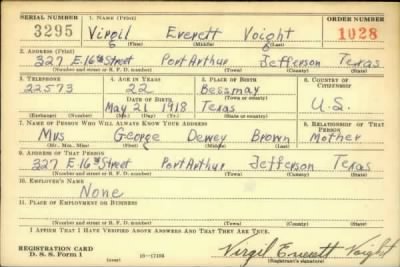 SERIAL NUMBER 1. NAME (Print) ORDER NUMBER
3295 Virgil Everett Voight 1028
(First) (Middle) (Last)
2. ADDRESS (Print)
327 E. 16th Street Port Arthur Jefferson Texas
(Number and street or R. F. D. number) (Town) (County) (State)
3. TELEPHONE 4. AGE IN YEARS 5. PLACE OF BIRTH 6. COUNTRY OF CITIZENSHIP
22573 22 Bessmay
DATE OF BIRTH (Town or county)
May 21 1918 Texas U.S.
(Exchange) (Number) (Mo.) (Day) (Yr.) (State or country)
7. NAME OF PERSON WHO WILL ALWAYS KNOW YOUR ADDRESS 8. RELATIONSHIP OF THAT PERSON
Mrs George Dewey Brown Mother
(Mr., Mrs., Miss) (First) (Middle) (Last)
9. ADDRESS OF THAT PERSON
327 E. 16th Street Port Arthur Jefferson Texas
(Number and street or R. F. D. number) (Town) (County) (State)
10. EMPLOYER'S NAME
None
11. PLACE OF EMPLOYMENT OR BUSINESS
(Number and street or R. F. D. number) (Town) (County) (State)
I AFFIRM THAT I HAVE VERIFIED ABOVE ANSWERS AND THAT THEY ARE TRUE.
REGISTRATION CARD
D. S. S. Form 1 (over) Virgil Everett Voight
(Registrant's signature)